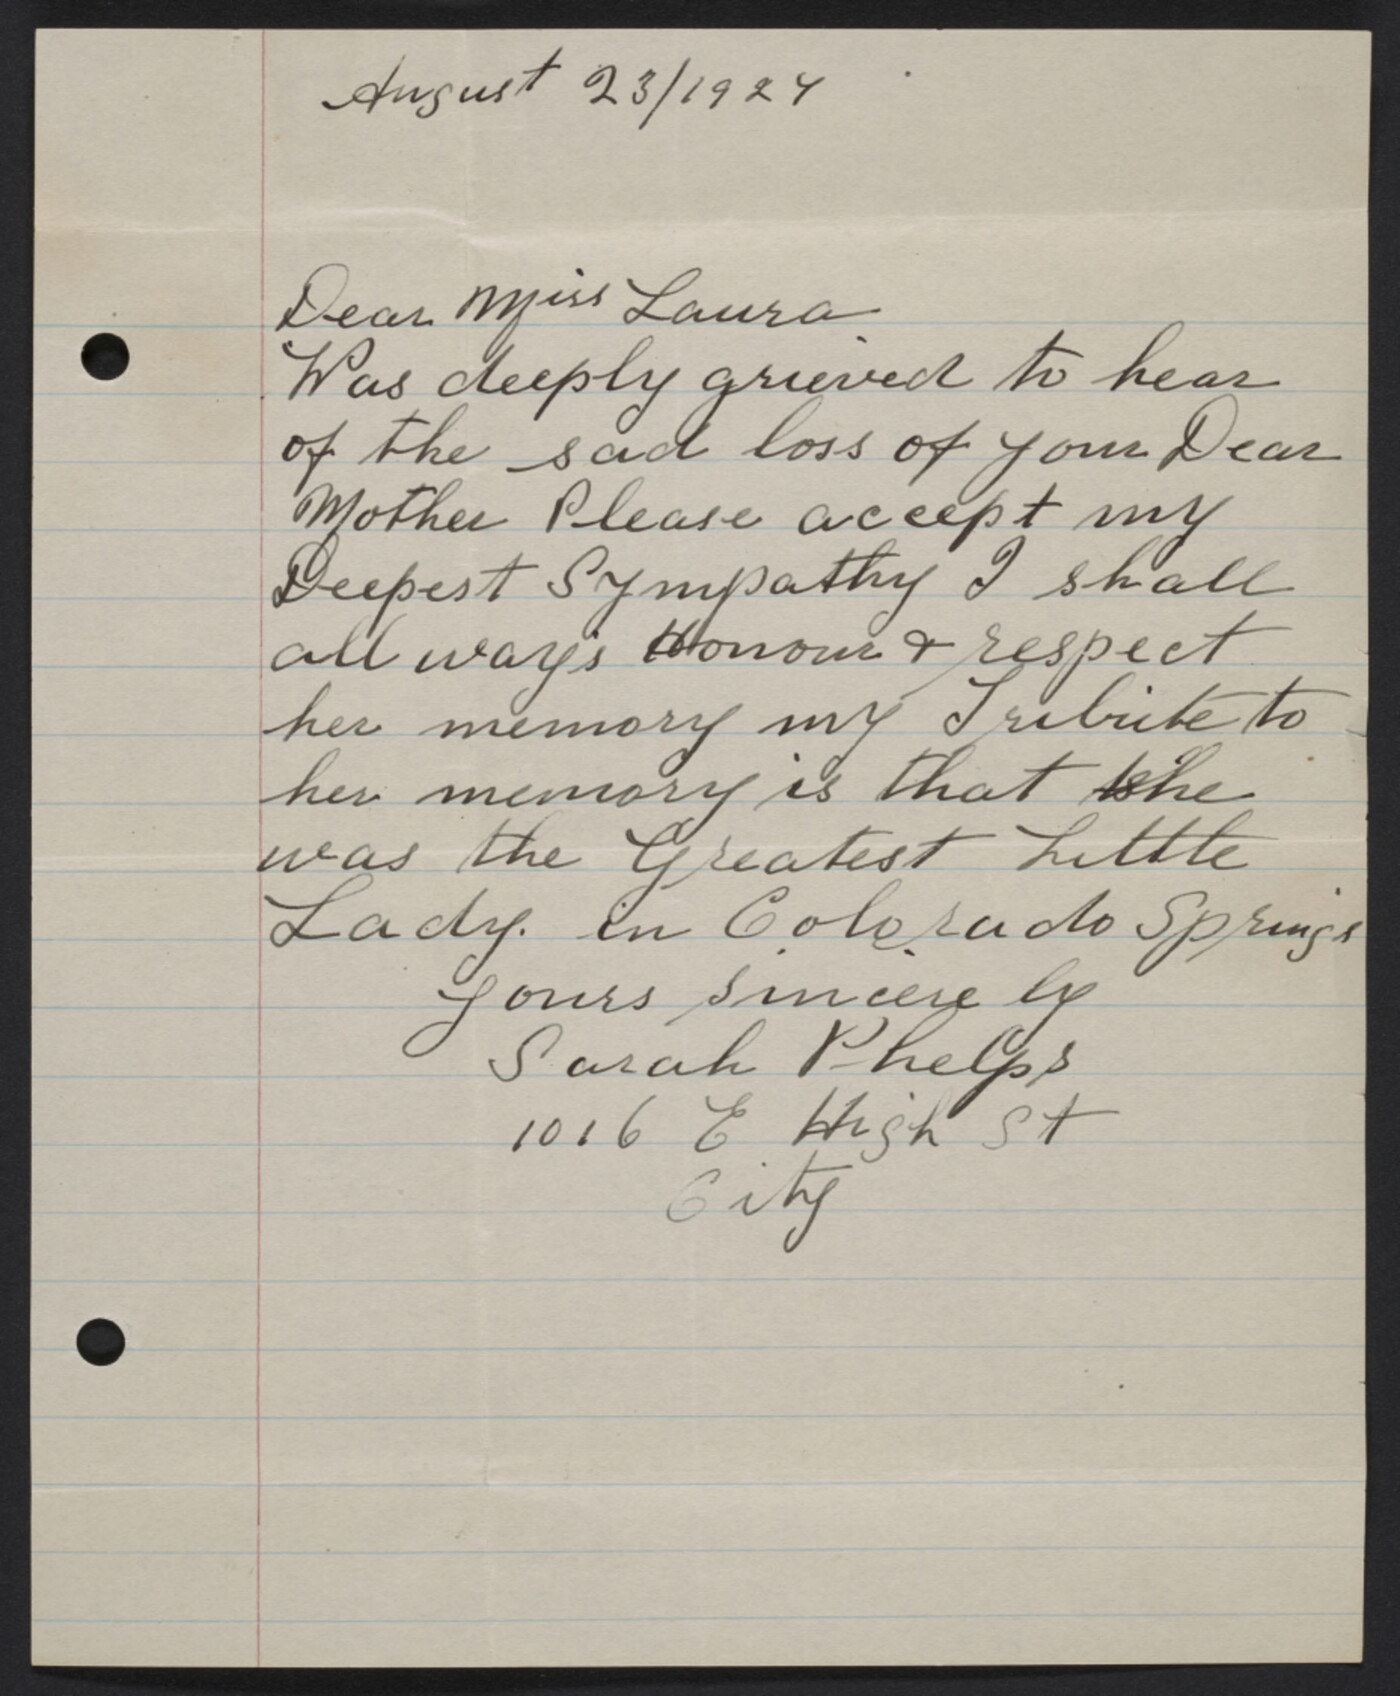 August 23/1924
Dear Miss Laura
Was deeply grieved to hear
of the sad loss of your Dear
Mother Please accept my
Deepest Sympathy I shall
all ways Honour & respect
her memory my Tribute to
her memory is that she
was the Greatest Little
Lady. in Colorado Springs
yours sincere ly
Sarah Phelps
1016 E High St
City